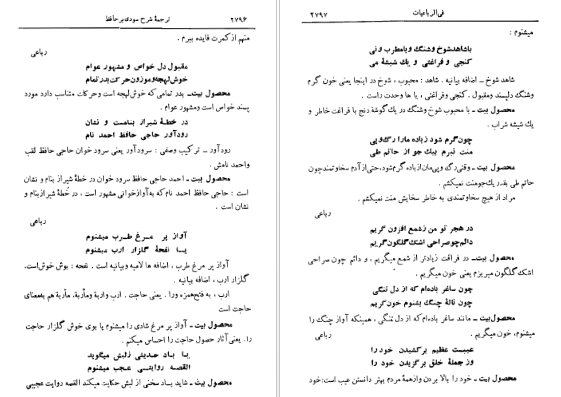 ترجمهٔ شرح سودی بر حافظ ۲۷۹۶
منهم از کمرت فایده ببرم .
رباعی
مقبول دل خواص و مشهور عوام
خوش لهجه و موزون حرکت بدر تمام
محصول بیت ـ بدر تمامی که خوش لهجه است و حرکات متناسب دارد مورد
پسند خواص و مشهور عوام .
در خطهٔ شیراز بناست و نشان
رودآور حاجی حافظ احمد نام
رودآور ـ ترکیب وصفی : سرودآور یعنی سرود خوان حاجی حافظ لقب
و احمد نامش .
محصول بیت ـ احمد حاجی حافظ سرود خوان در خطهٔ شیراز بنام و نشان
است : حاجی حافظ احمد نام که به آوازخوانی مشهور است ، در خطهٔ شیراز بنام و
نشان است .
رباعی
آواز پر مرغ طرب میشنوم
یا نفحهٔ گلزار ارب میشنوم
آواز پر مرغ طرب ، اضافه ها لامیه و بیانیه است . نفحه : بوش خوش است .
گلزار ارب ، اضافه بیانیه .
ارب ، به فتح همزه و را . یعنی حاجت . ارب و اربة و مأربة، مأربة هم به معنای
حاجت است
محصول بیت ـ آواز پر مرغ شادی را میشنوم یا بوی خوش گلزار حاجت
را. یعنی آثار حصول حاجت را احساس میکنم .
یا باد حدیثی ز لبش میگوید
القصه روایتی عجب میشنوم
محصول بیت ـ شاید باد سخنی از لبش حکایت میکند القصه روایت عجیبی
فی الرباعیات ۲۷۹۷
میشنوم :
با شاهد شوخ و شنگ و با مطرب و نی
کنجی و فراغتی و یک شیشهٔ می
شاهد شوخ ـ اضافه بیانیه . شاهد : محبوب ، شوخ در اینجا یعنی خون گرم
و شنگ دلپسند و مقبول . کنجی و فراغتی ، یا ها وحدت راست .
محصول بیت ـ با محبوب شوخ و شنگ در یک گوشهٔ دنج با فراغت خاطر و
یک شیشه شراب .
چون گرم شود ز باده ما را رگ و پی
منت نبرم بیک جو از حاتم طی
محصول بیت ـ وقتی رگ و پی مان از باده گرم شود، حتی از آدم سخاوتمندی چون
حاتم طی بقدر یک جو منت نمیکشم .
مراد از هیچ سخاوتمندی به خاطر سخایش منت نمیکشم .
رباعی
در هجر تو من ز شمع افزون گریم
دائم چو صراحی اشک گلگون گریم
محصول بیت ـ در فراقت زیادتر از شمع میگریم ، و دائم چون صراحی
اشک گلگون میریزم یعنی خون میگریم .
چون ساغر باده ام که از دل تنگی
چون نالهٔ چنگ بشنوم خون گریم
محصول بیت ـ مانند ساغر باده ام که از دل تنگی ، همینکه آواز چنگ را
میشنوم، خون میگریم .
رباعی
عیبست عظیم برکشیدن خود را
وز جملهٔ خلق برگزیدن خود را
محصول بیت ـ خود را بالا بردن و از همهٔ مردم بهتر دانستن عیب است: خود